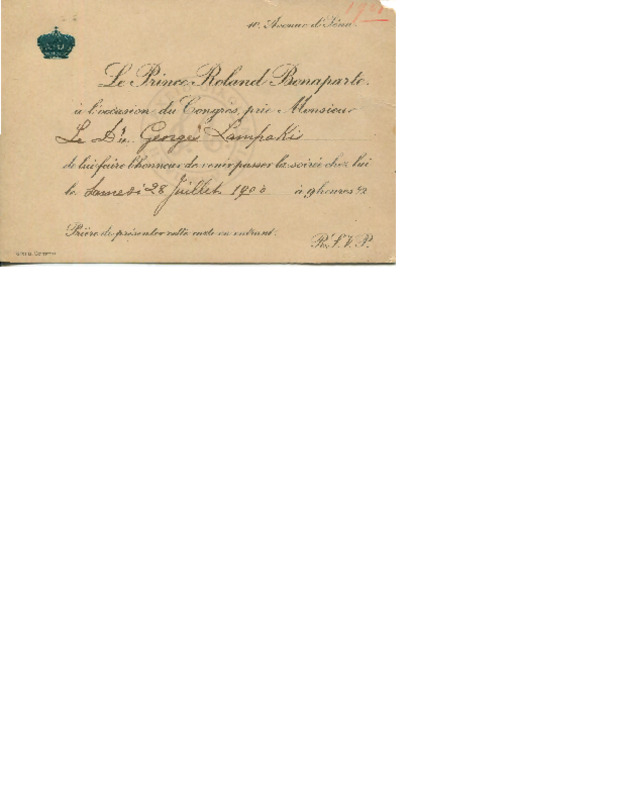 10, Avenue d'Iéna.
Le Prince Roland Bonaparte.
à l'occasion du Congrès, prie Monsieur
Le Dr. Georges Lampaki
de lui faire l'honneur de venir passer la soirée chez lui
le Samedi 28 Juillet 1900 à 9 heures ½
Prière de présenter cette carte en entrant.
R.S.V.P.